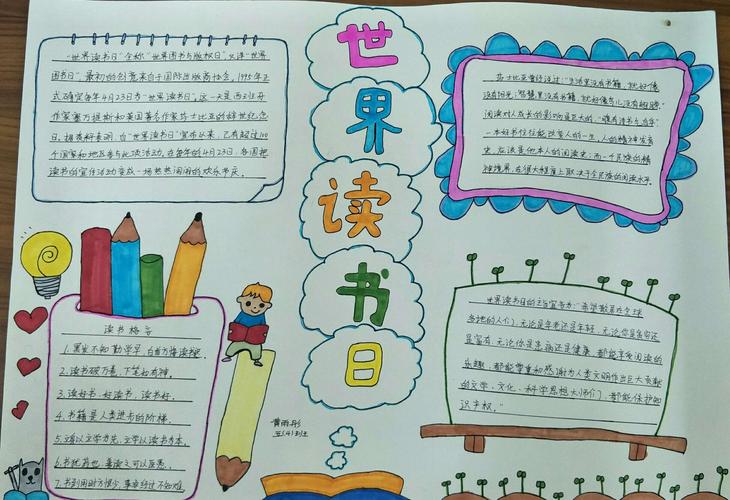 世
界
读
书
日
"世界读书日"全称"世界图书与版权日",又译"世界
图书日",最初的创意来自于国际出版商协会。1995年正
式确定每年4月23日为"世界读书日",这一天是西班牙
作家塞万提斯和英国著名作家莎士比亚的辞世纪念
日。据资料表明,自"世界读书日"宣布以来,已有超过100
个国家和地区参与此项活动。在每年的4月23日,各国把
读书的宣传活动变成一场热热闹闹的欢乐节庆。
莎士比亚曾经说过:"生活里没有书籍,就好像
没有阳光;智慧里没有书籍,就好像鸟儿没有翅膀。"
阅读对人成长的影响是巨大的,
一本好书往往能改变人的一生。人的精神发育
史,应该是他本人的阅读史;而一个民族的精
神境界,在很大程度上取决于全民族的阅读水平。
读书格言
1.黑发不知勤学早,白首方悔读书迟。
2.读书破万卷,下笔如有神。
3.读好书,好读书,读书好。
4.书籍是人类进步的阶梯。
5.立身以立学为先,立学以读书为本。
6.书犹药也,善读之可以医愚。
7.书到用时方恨少,事非经过不知难。
黄雨彤
五(4)班
世界读书日的主旨宣言为:"希望散居在全球
各地的人们,无论是年老还是年轻,无论你是贫穷还
是富有,无论你是患病还是健康,都能享受阅读的
乐趣,都能尊重和感谢为人类文明作出巨大贡献
的文学、文化、科学思想大师们,都能保护知
识产权。"